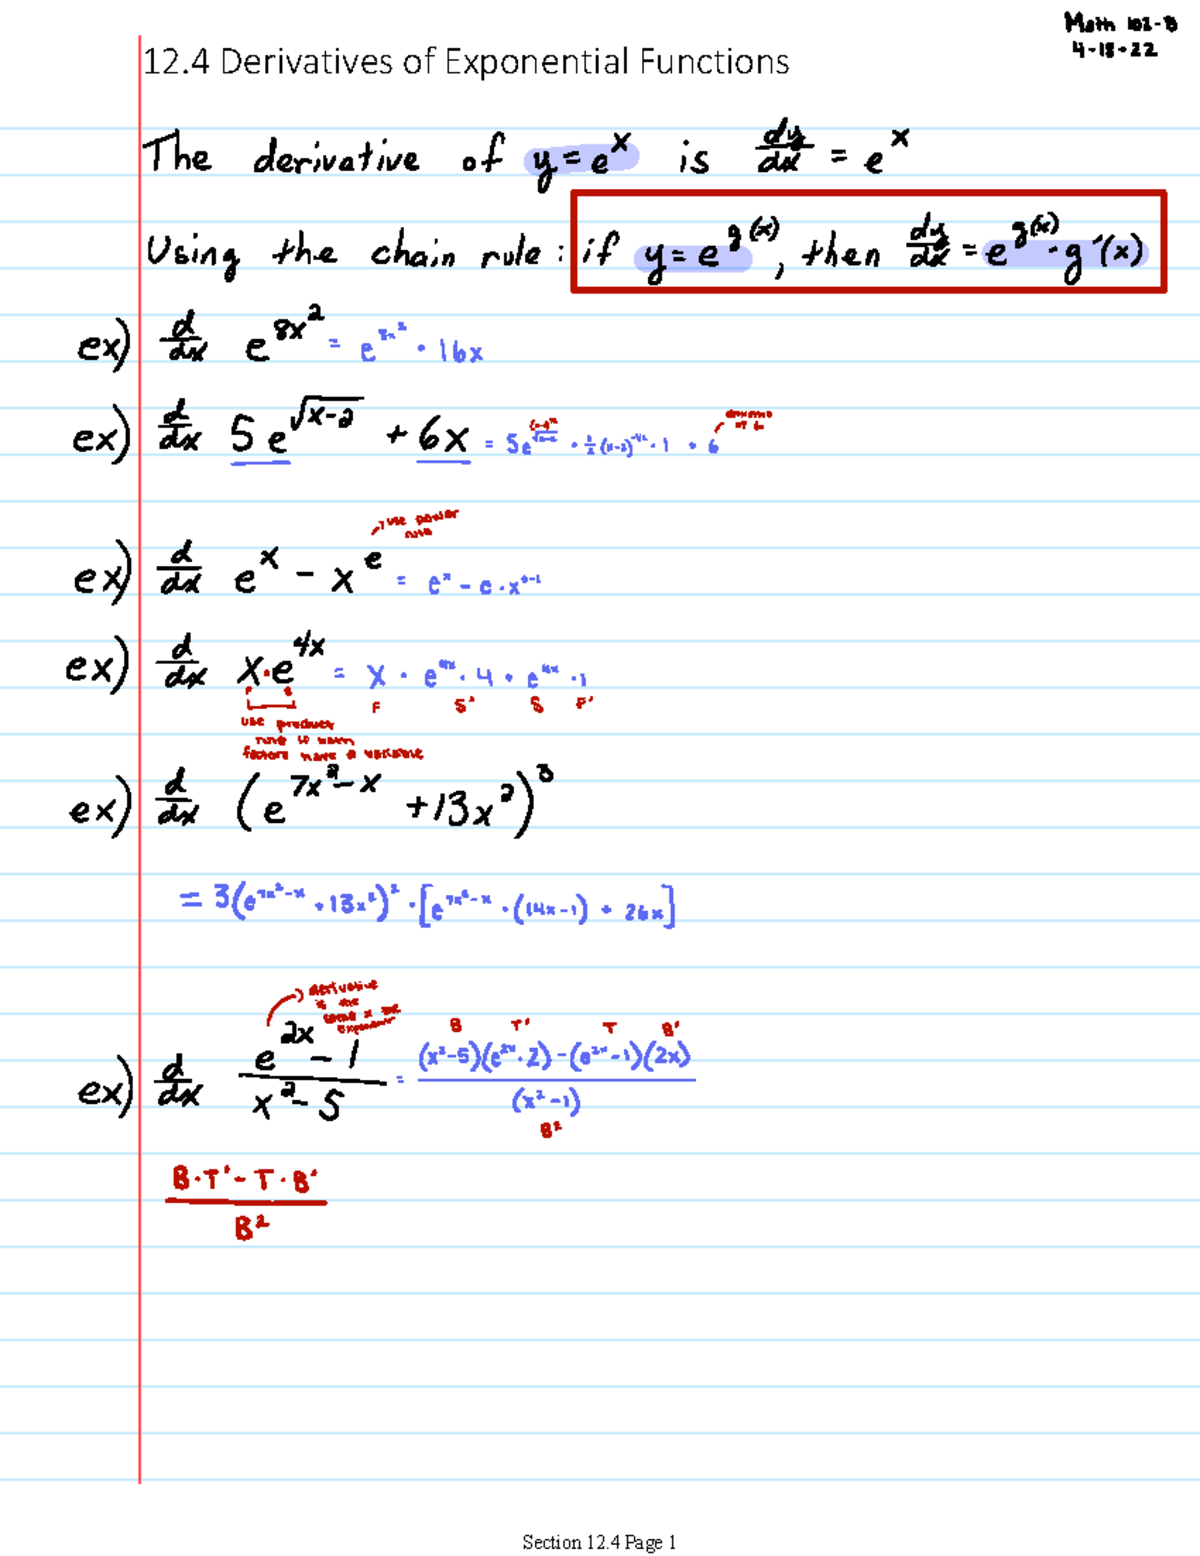 Math 102-B
4-18-22
12.4 Derivatives of Exponential Functions
The derivative of y = e^x is dy/dx = e^x
Using the chain rule: if y = e^g(x), then dy/dx = e^g(x) · g'(x)
ex) d/dx e^8x^2 = e^8x^2 · 16x
ex) d/dx 5e^√(x-2) + 6x = 5e^√(x-2) · 1/2 (x-2)^-1/2 · 1 + 6
use power rule
ex) d/dx e^x - x^e = e^x - e · x^e-1
ex) d/dx x·e^4x = x · e^4x · 4 + e^4x · 1
F S' S F'
use product
rule
factors have a variable
ex) d/dx (e^7x^2-x + 13x^2)^3
= 3(e^7x^2-x + 13x^2)^2 · [e^7x^2-x · (14x-1) + 26x]
derivative
is the
exponent
B T' T B'
ex) d/dx (e^2x - 1)/(x^2 - 5) = ((x^2-5)(e^2x · 2) - (e^2x - 1)(2x))/(x^2-1)
B^2
(B·T' - T·B')/B^2
Section 12.4 Page 1